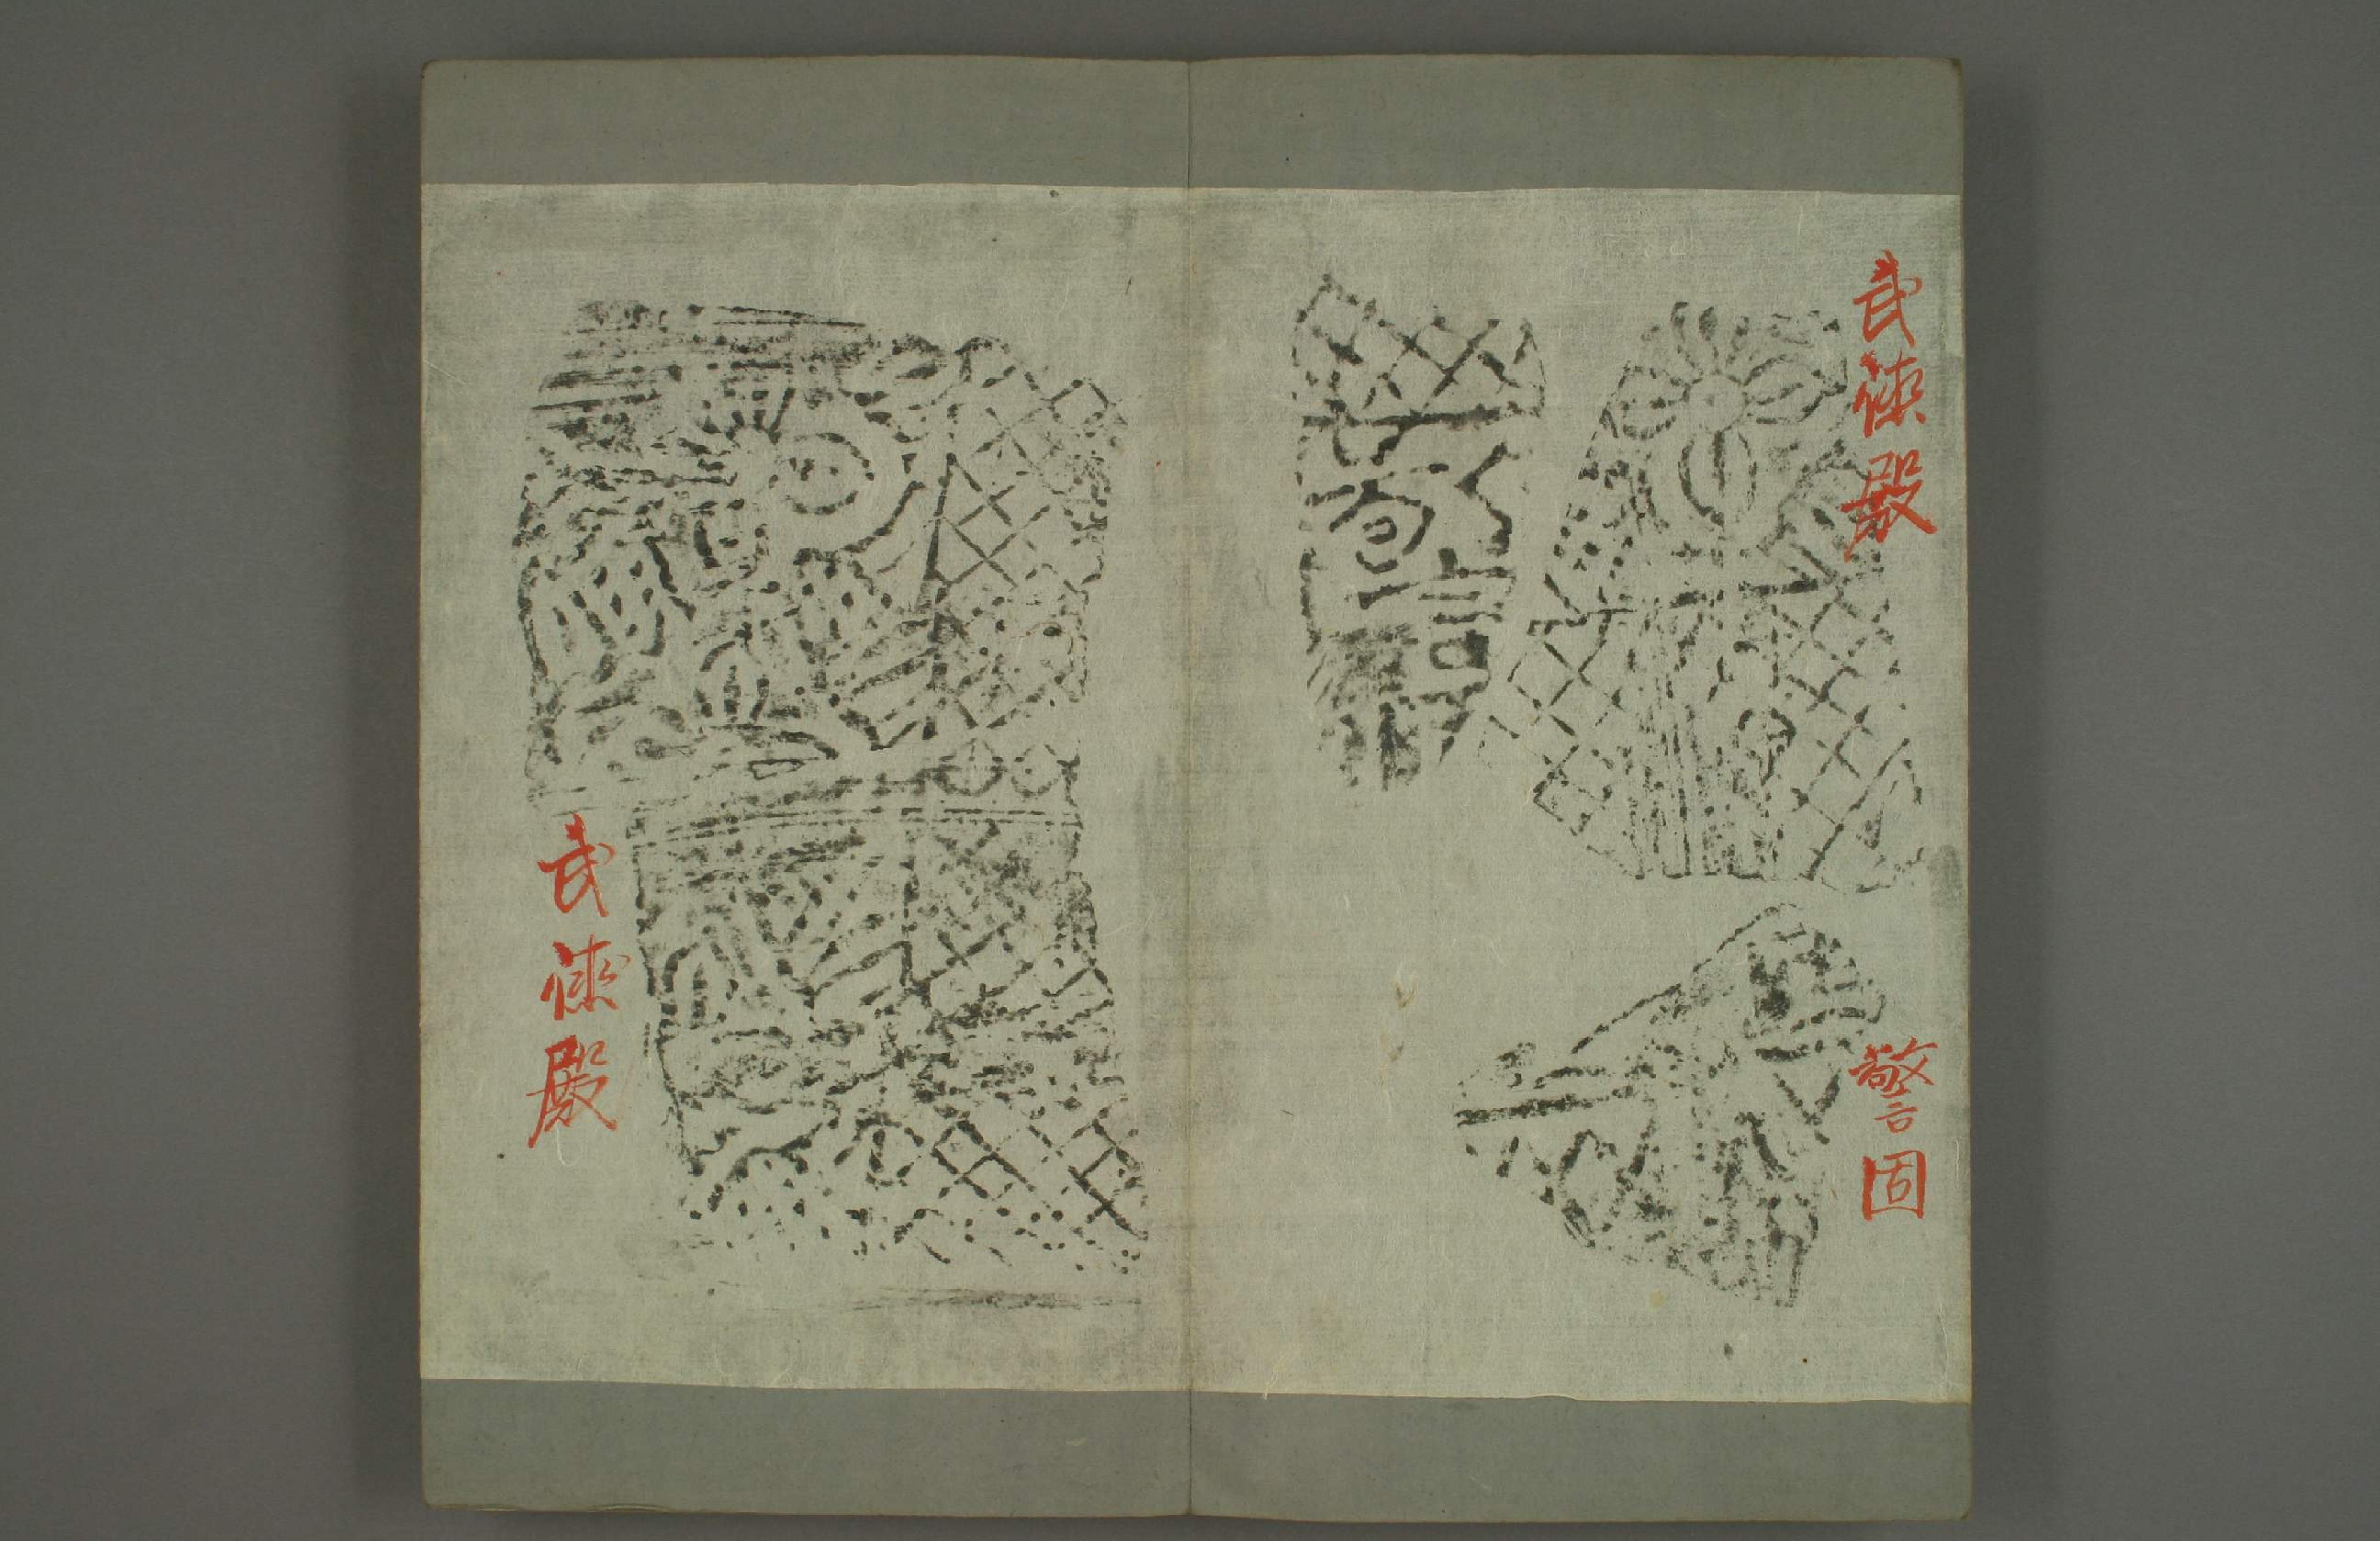 武徳殿
警固
武徳殿